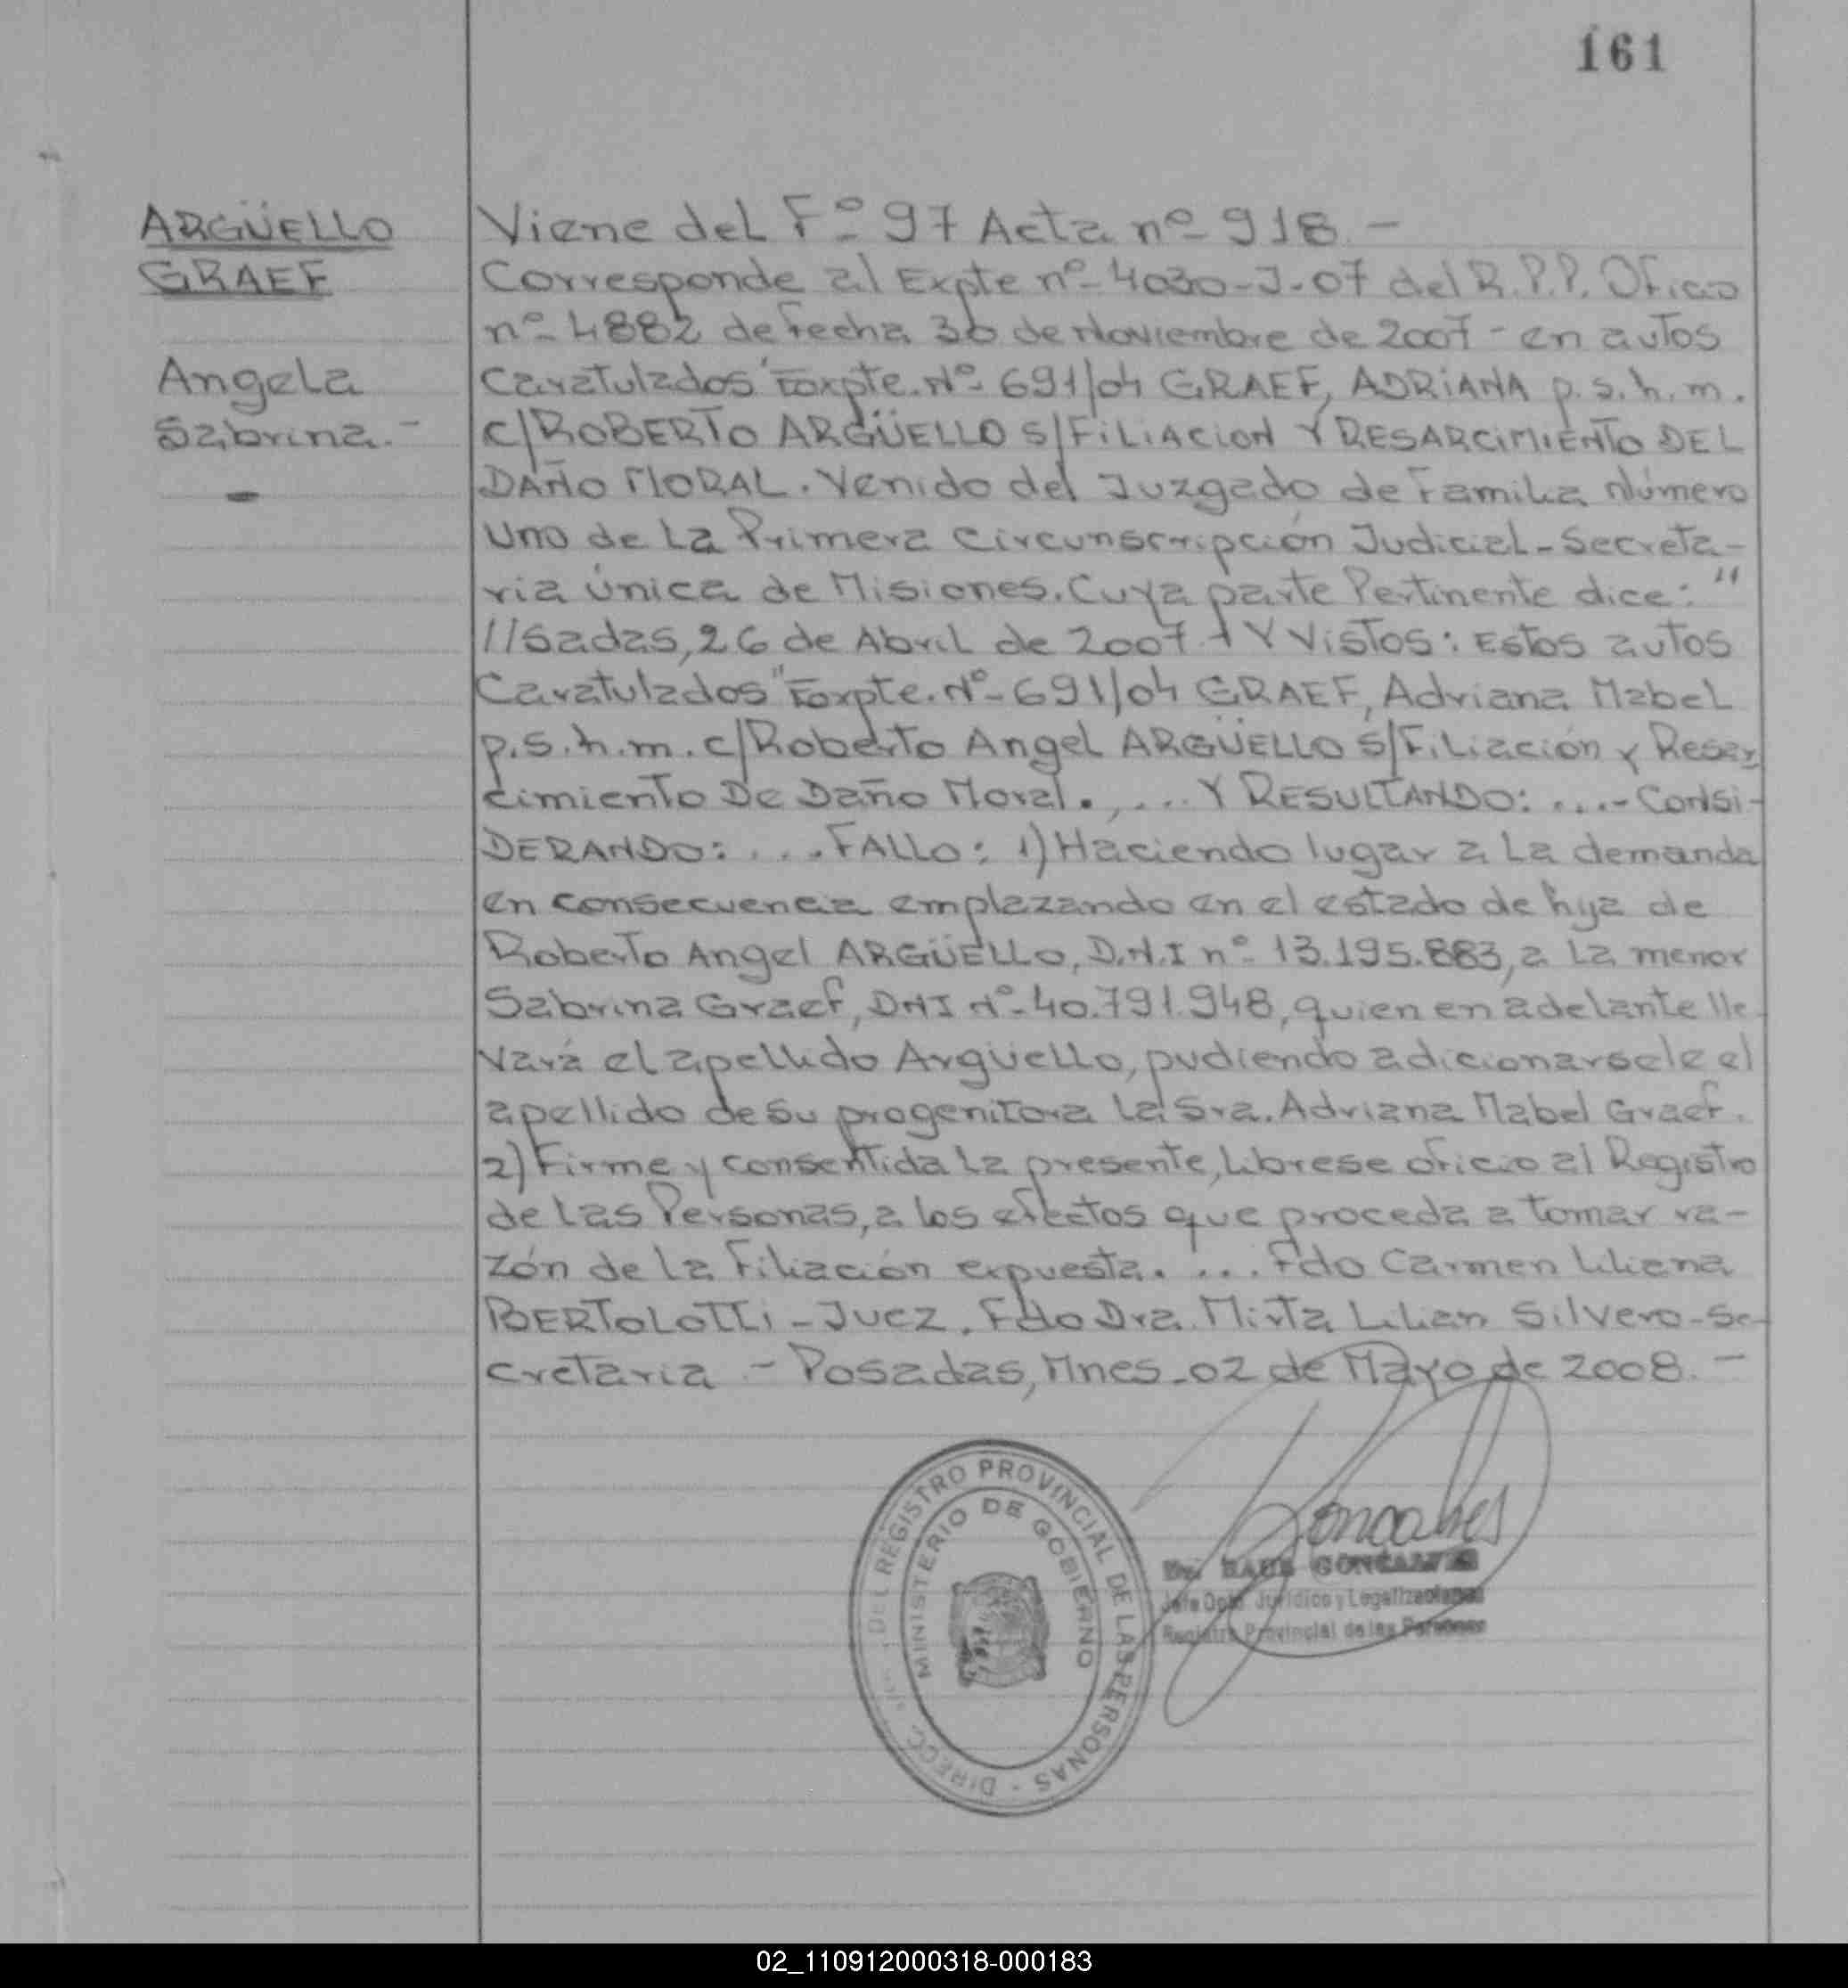 161
ARGÜELLO
GRAEF
Angela
Sabrina.-
Viene del Fº 97 Acta nº 918.-
Corresponde al Expte nº 4030-J-07 del R.P.P. Oficio
nº 4882 de fecha 30 de Noviembre de 2007- en autos
Caratulados "Expte. Nº 691/04 GRAEF, ADRIANA p.s.h.m.
c/ROBERTO ARGÜELLO S/FILIACION Y RESARCIMIENTO DEL
DAÑO MORAL. Venido del Juzgado de Familia Número
Uno de La Primera Circunscripción Judicial-Secreta-
ria única de Misiones. Cuya parte Pertinente dice: "
//sadas, 26 de Abril de 2007. Y VISTOS: Estos autos
Caratulados "Expte. Nº 691/04 GRAEF, Adriana Mabel
p.s.h.m. c/Roberto Angel ARGÜELLO S/Filiación y Resar
cimiento De Daño Moral., ... Y RESULTANDO: ....- CONSI-
DERANDO: .... FALLO: 1) Haciendo lugar a La demanda
en consecuencia emplazando en el estado de hija de
Roberto Angel ARGÜELLO, D.N.I nº 13.195.883, a La menor
Sabrina Graef, DNI Nº 40.791.948, quien en adelante lle-
vará el apellido Argüello, pudiendo adicionarsele el
apellido de su progenitora La Sra. Adriana Mabel Graef.
2) Firme y consentida la presente, Librese oficio al Registro
de las Personas, a los efectos que proceda a tomar ra-
zón de la Filiación expuesta. ... Fdo Carmen Liliana
BERTOLOTTI - Juez. Fdo Dra. Mirta Lilian Silvero-Se-
cretaria - Posadas, Mnes-02 de Mayo de 2008.-
DEL REGISTRO PROVINCIAL DE LAS PERSONAS - DIRECC
MINISTERIO DE GOBIERNO
Goncalves
GONCALVES
Jefe Dpto. Jurídico y Legalizaciones
Registro Provincial de las Personas
02_110912000318-000183